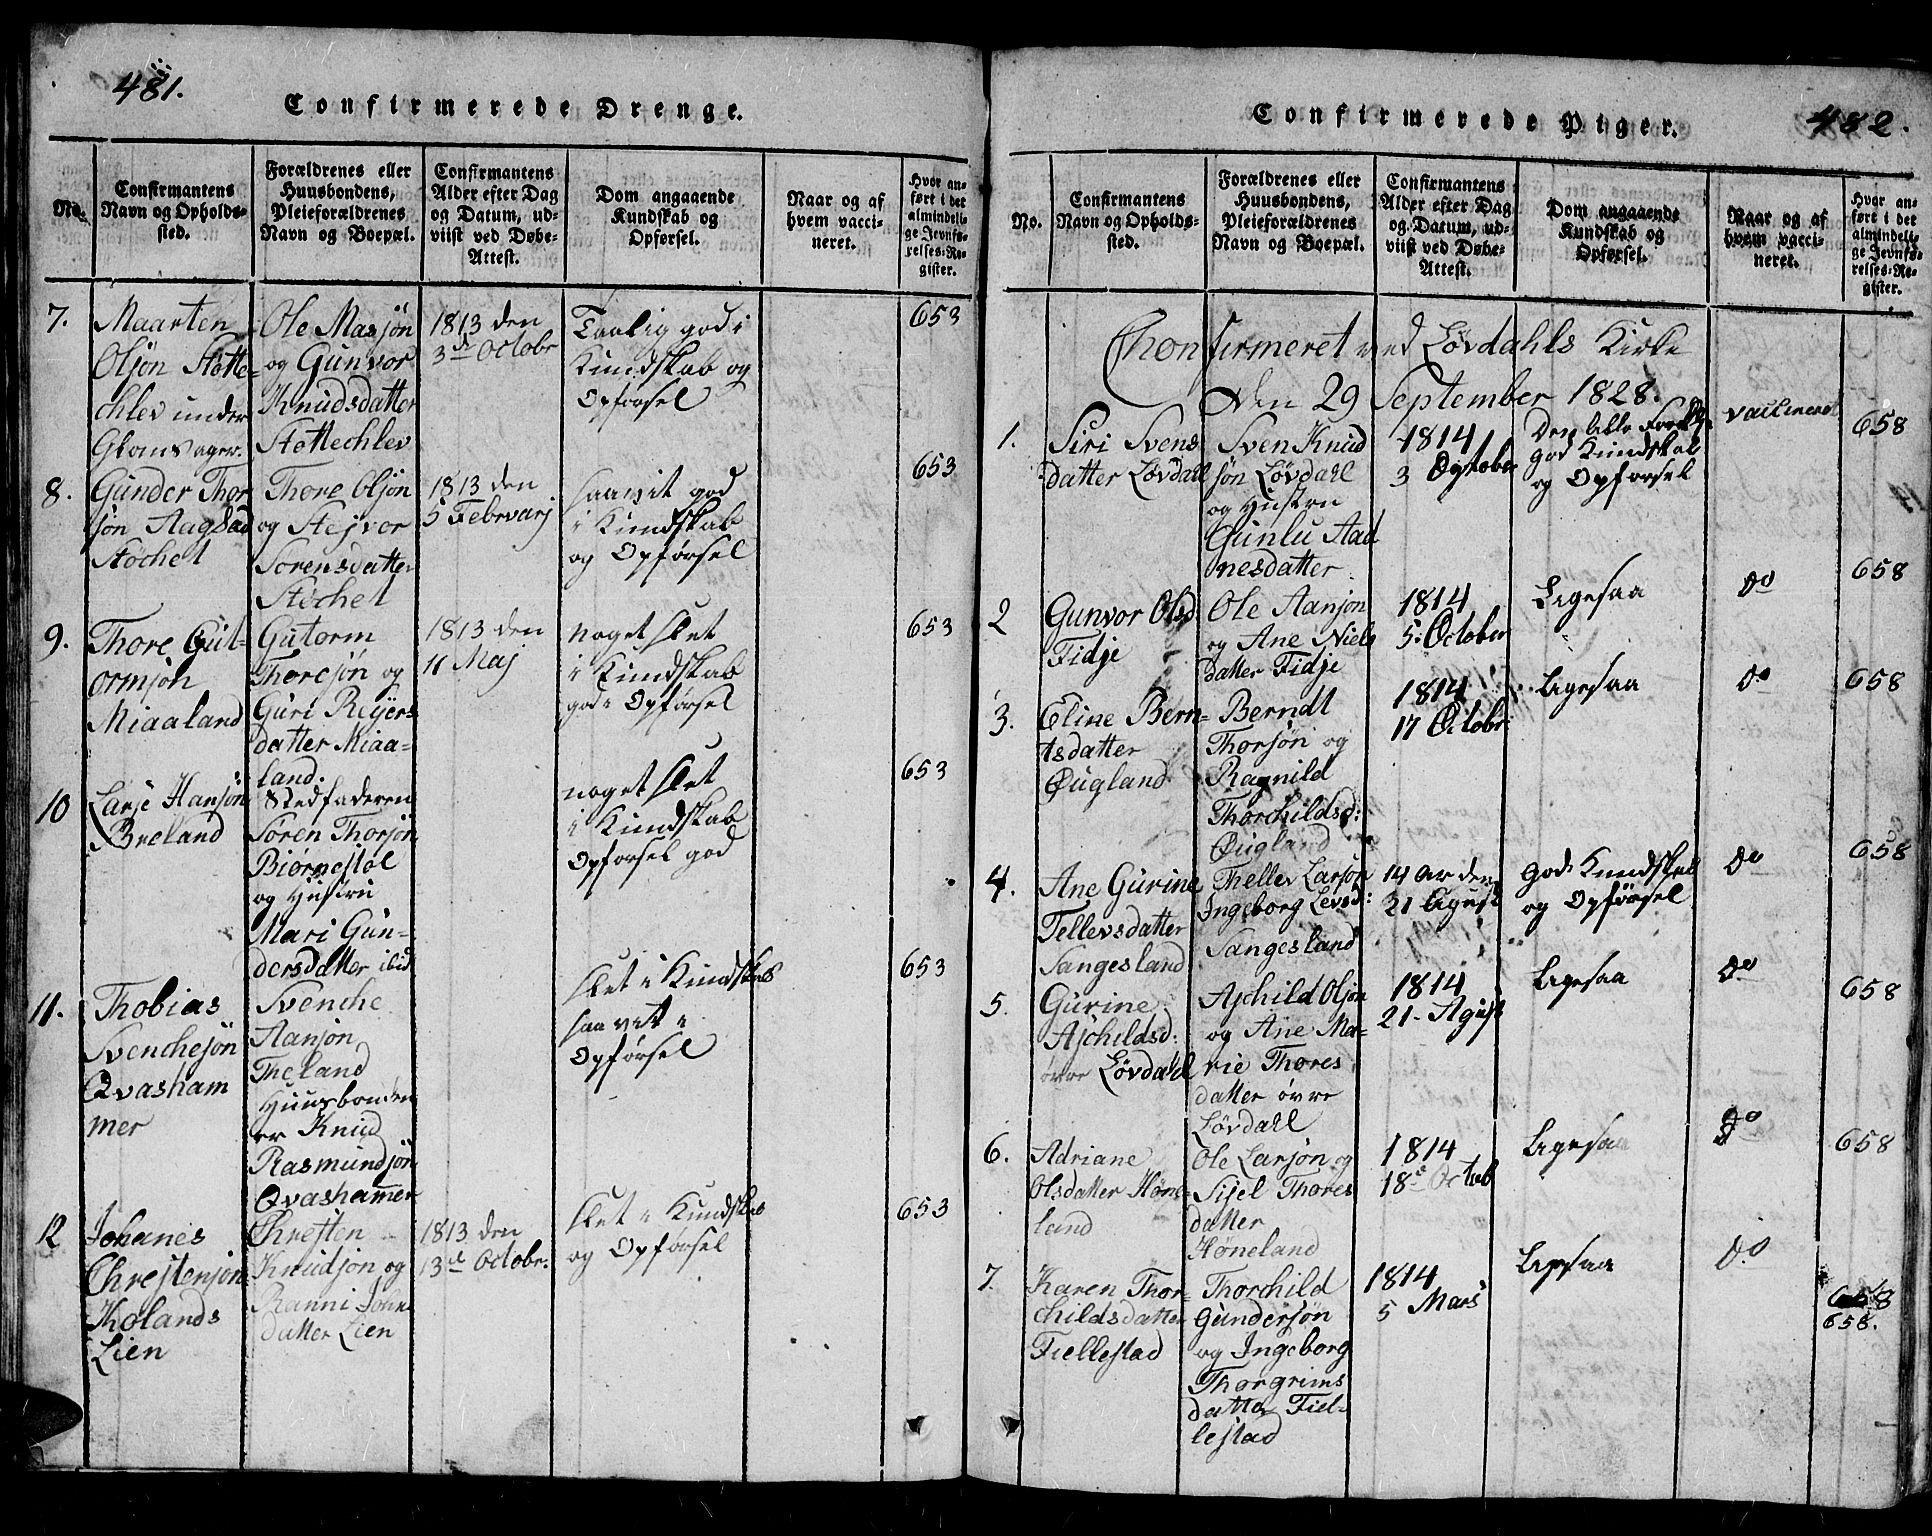 481.
Confirmerede Drenge.
No.
Confirmantens
Navn og Opholds-
sted.
Forældrenes eller
Huusbondens,
Pleieforældrenes
Navn og Boepæl.
Confirmantens
Alder efter Dag
og Datum, ud-
viist ved Døbe-
Attest.
Dom angaaende
Kundskab og
Opførsel.
Naar og af
hvem vacci-
neret.
Hvor an-
ført i det
almindeli-
ge Jevnfø-
relses-Re-
gister.
7.
Maarten
Olsøn Støtte-
chlev under
Glomsager.
Ole Masjøn
og Gunvor
Knudsdatter
Støttechlev
1813 den
3de Octobr
Taalig god i
Kundskab og
Opførsel
653
8.
Gunder Thor
søn Aagsad
Stochet
Thore Olsøn
og Stejver
Sorensdatter
Stochet
1813 den
5 Febrvarj
saavit god
i Kundskab
og Opførsel
653
9.
Thore Gut-
ormsøn
Miaaland
Gutorm
Thoresøn og
Guri Reijers
datter Miaa-
land.
1813 den
11 Maj
noget slet
i Kundskab
god i Opførsel
653
10
Larse Hansøn
Breland
Stedfaderen
Søren Thorsøn
Biørnestøl
og Hustru
Mari Gun-
dersdatter ibid
noget slet
i Kundskab
Opførsel god
653
11.
Thobias
Svenchesøn
Qvasham
mer
Svenche
Aanjøn
Theland
Huusbonden
er Knud
Rasmundsøn
Qvashamer
slet i Kundskab
saavit i
Opførsel
653
12
Johanes
Chrestensøn
Holands
Lien
Chresten
Knudsøn og
Ranni Johns
datter Lien
1813 den
13de Octobr.
slet i Kundskab
og Opførsel
653
Confirmerede Piger.
482.
No.
Confirmantens
Navn og Opholds-
sted.
Forældrenes eller
Huusbondens,
Pleieforældrenes
Navn og Boepæl.
Confirmantens
Alder efter Dag
og Datum, ud-
viist ved Døbe-
Attest.
Dom angaaende
Kundskab og
Opførsel.
Naar og af
hvem vacci-
neret.
Hvor an-
ført i det
almindeli-
ge Jevnfø-
relses-Re-
gister.
Chonfirmeret ved Løvdahls Kirke
den 29 September 1828.
1.
Siri Svens
datter Løvdall
Sven Knud
søn Løvdall
og Hustru
Gunlu Aad
nesdatter
1814
3 Ogtober
god Kundskab
og Opførsel
vaccineret
658
2
Gunvor Olsd
Fidje
Ole Aanjøn
og Ane Niels
datter Fidje
1814
5: October
Ligesaa
do
658
3.
Eline Bern-
tsdatter
Øugland
Berndt
Thorsøn og
Ragnild
Thorchildsd:
Øugland
1814
17 Octobr:
Ligesaa
do
658
4.
Ane Gurine
Tellevsdatter
Sangesland
Thellev Larsøn
Ingeborg Levsd:
Sangesland
14 Ar den
21 Agust
god Kundskab
og Opførsel
do
658
5.
Gurine
Ajchildsd:
øvre Løvdahl
Ajchild Olsøn
og Ane Ma-
rie Thores
datter øvre
Løvdall
1814
21- Agust
Ligesaa
do
658
6.
Adriane
Olsdatter Høne-
land
Ole Larsøn og
Sijel Thores
datter
Høneland
1814
18de Octob
Ligesaa
do
658
7.
Karen Thor-
childsdatter
Fiellestad
Thorchild
Gundersøn
og Ingeborg
Thorgrims
datter Fiel-
lestad
1814
5 Mars
Ligesaa
do
658
658.